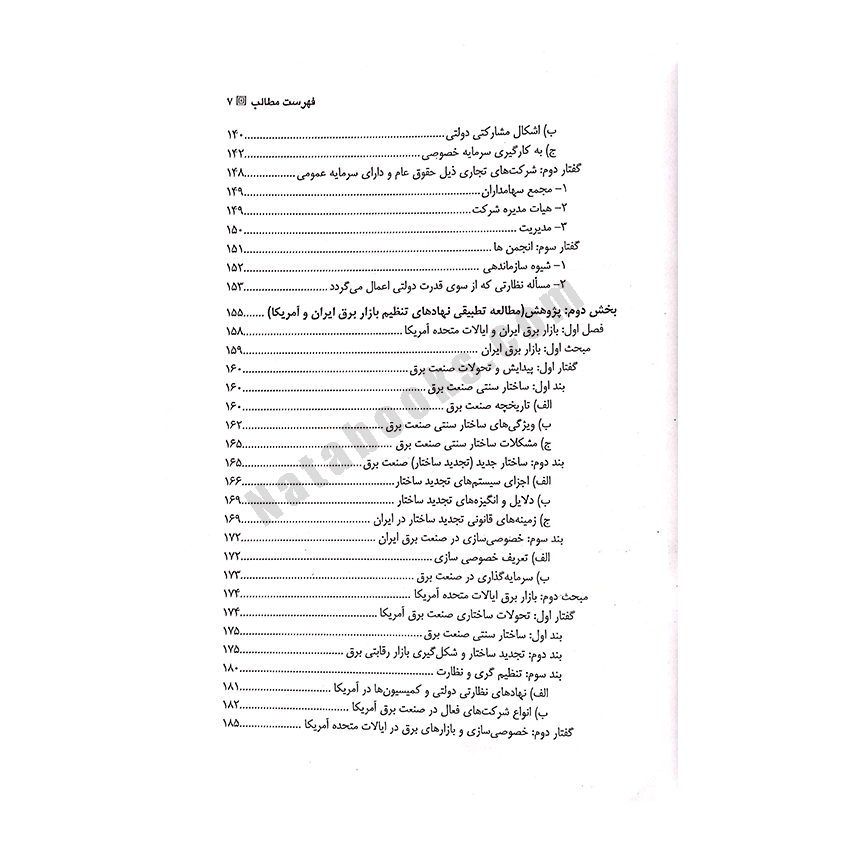 فهرست مطالب ۷
ب) اشکال مشارکتی دولتی ۱۴۰
ج) به کارگیری سرمایه خصوصی ۱۴۲
گفتار دوم: شرکت‌های تجاری ذیل حقوق عام و دارای سرمایه عمومی ۱۴۸
۱- مجمع سهامداران ۱۴۹
۲- هیات مدیره شرکت ۱۴۹
۳- مدیریت ۱۵۰
گفتار سوم: انجمن ها ۱۵۱
۱- شیوه سازماندهی ۱۵۲
۲- مسأله نظارتی که از سوی قدرت دولتی اعمال می‌گردد ۱۵۳
بخش دوم: پژوهش(مطالعه تطبیقی نهادهای تنظیم بازار برق ایران و آمریکا) ۱۵۵
فصل اول: بازار برق ایران و ایالات متحده آمریکا ۱۵۸
مبحث اول: بازار برق ایران ۱۵۹
گفتار اول: پیدایش و تحولات صنعت برق ۱۶۰
بند اول: ساختار سنتی صنعت برق ۱۶۰
الف) تاریخچه صنعت برق ۱۶۰
ب) ویژگی‌های ساختار سنتی صنعت برق ۱۶۲
ج) مشکلات ساختار سنتی صنعت برق ۱۶۵
بند دوم: ساختار جدید (تجدید ساختار) صنعت برق ۱۶۵
الف) اجزای سیستم‌های تجدید ساختار ۱۶۶
ب) دلایل و انگیزه‌های تجدید ساختار ۱۶۹
ج) زمینه‌های قانونی تجدید ساختار در ایران ۱۶۹
بند سوم: خصوصی‌سازی در صنعت برق ایران ۱۷۲
الف) تعریف خصوصی سازی ۱۷۲
ب) سرمایه‌گذاری در صنعت برق ۱۷۳
مبحث دوم: بازار برق ایالات متحده آمریکا ۱۷۴
گفتار اول: تحولات ساختاری صنعت برق آمریکا ۱۷۴
بند اول: ساختار سنتی صنعت برق ۱۷۵
بند دوم: تجدید ساختار و شکل‌گیری بازار رقابتی برق ۱۷۵
بند سوم: تنظیم گری و نظارت ۱۸۰
الف) نهادهای نظارتی دولتی و کمیسیون‌ها در آمریکا ۱۸۱
ب) انواع شرکت‌های فعال در صنعت برق آمریکا ۱۸۲
گفتار دوم: خصوصی‌سازی و بازارهای برق در ایالات متحده آمریکا ۱۸۵
Natabooks.com